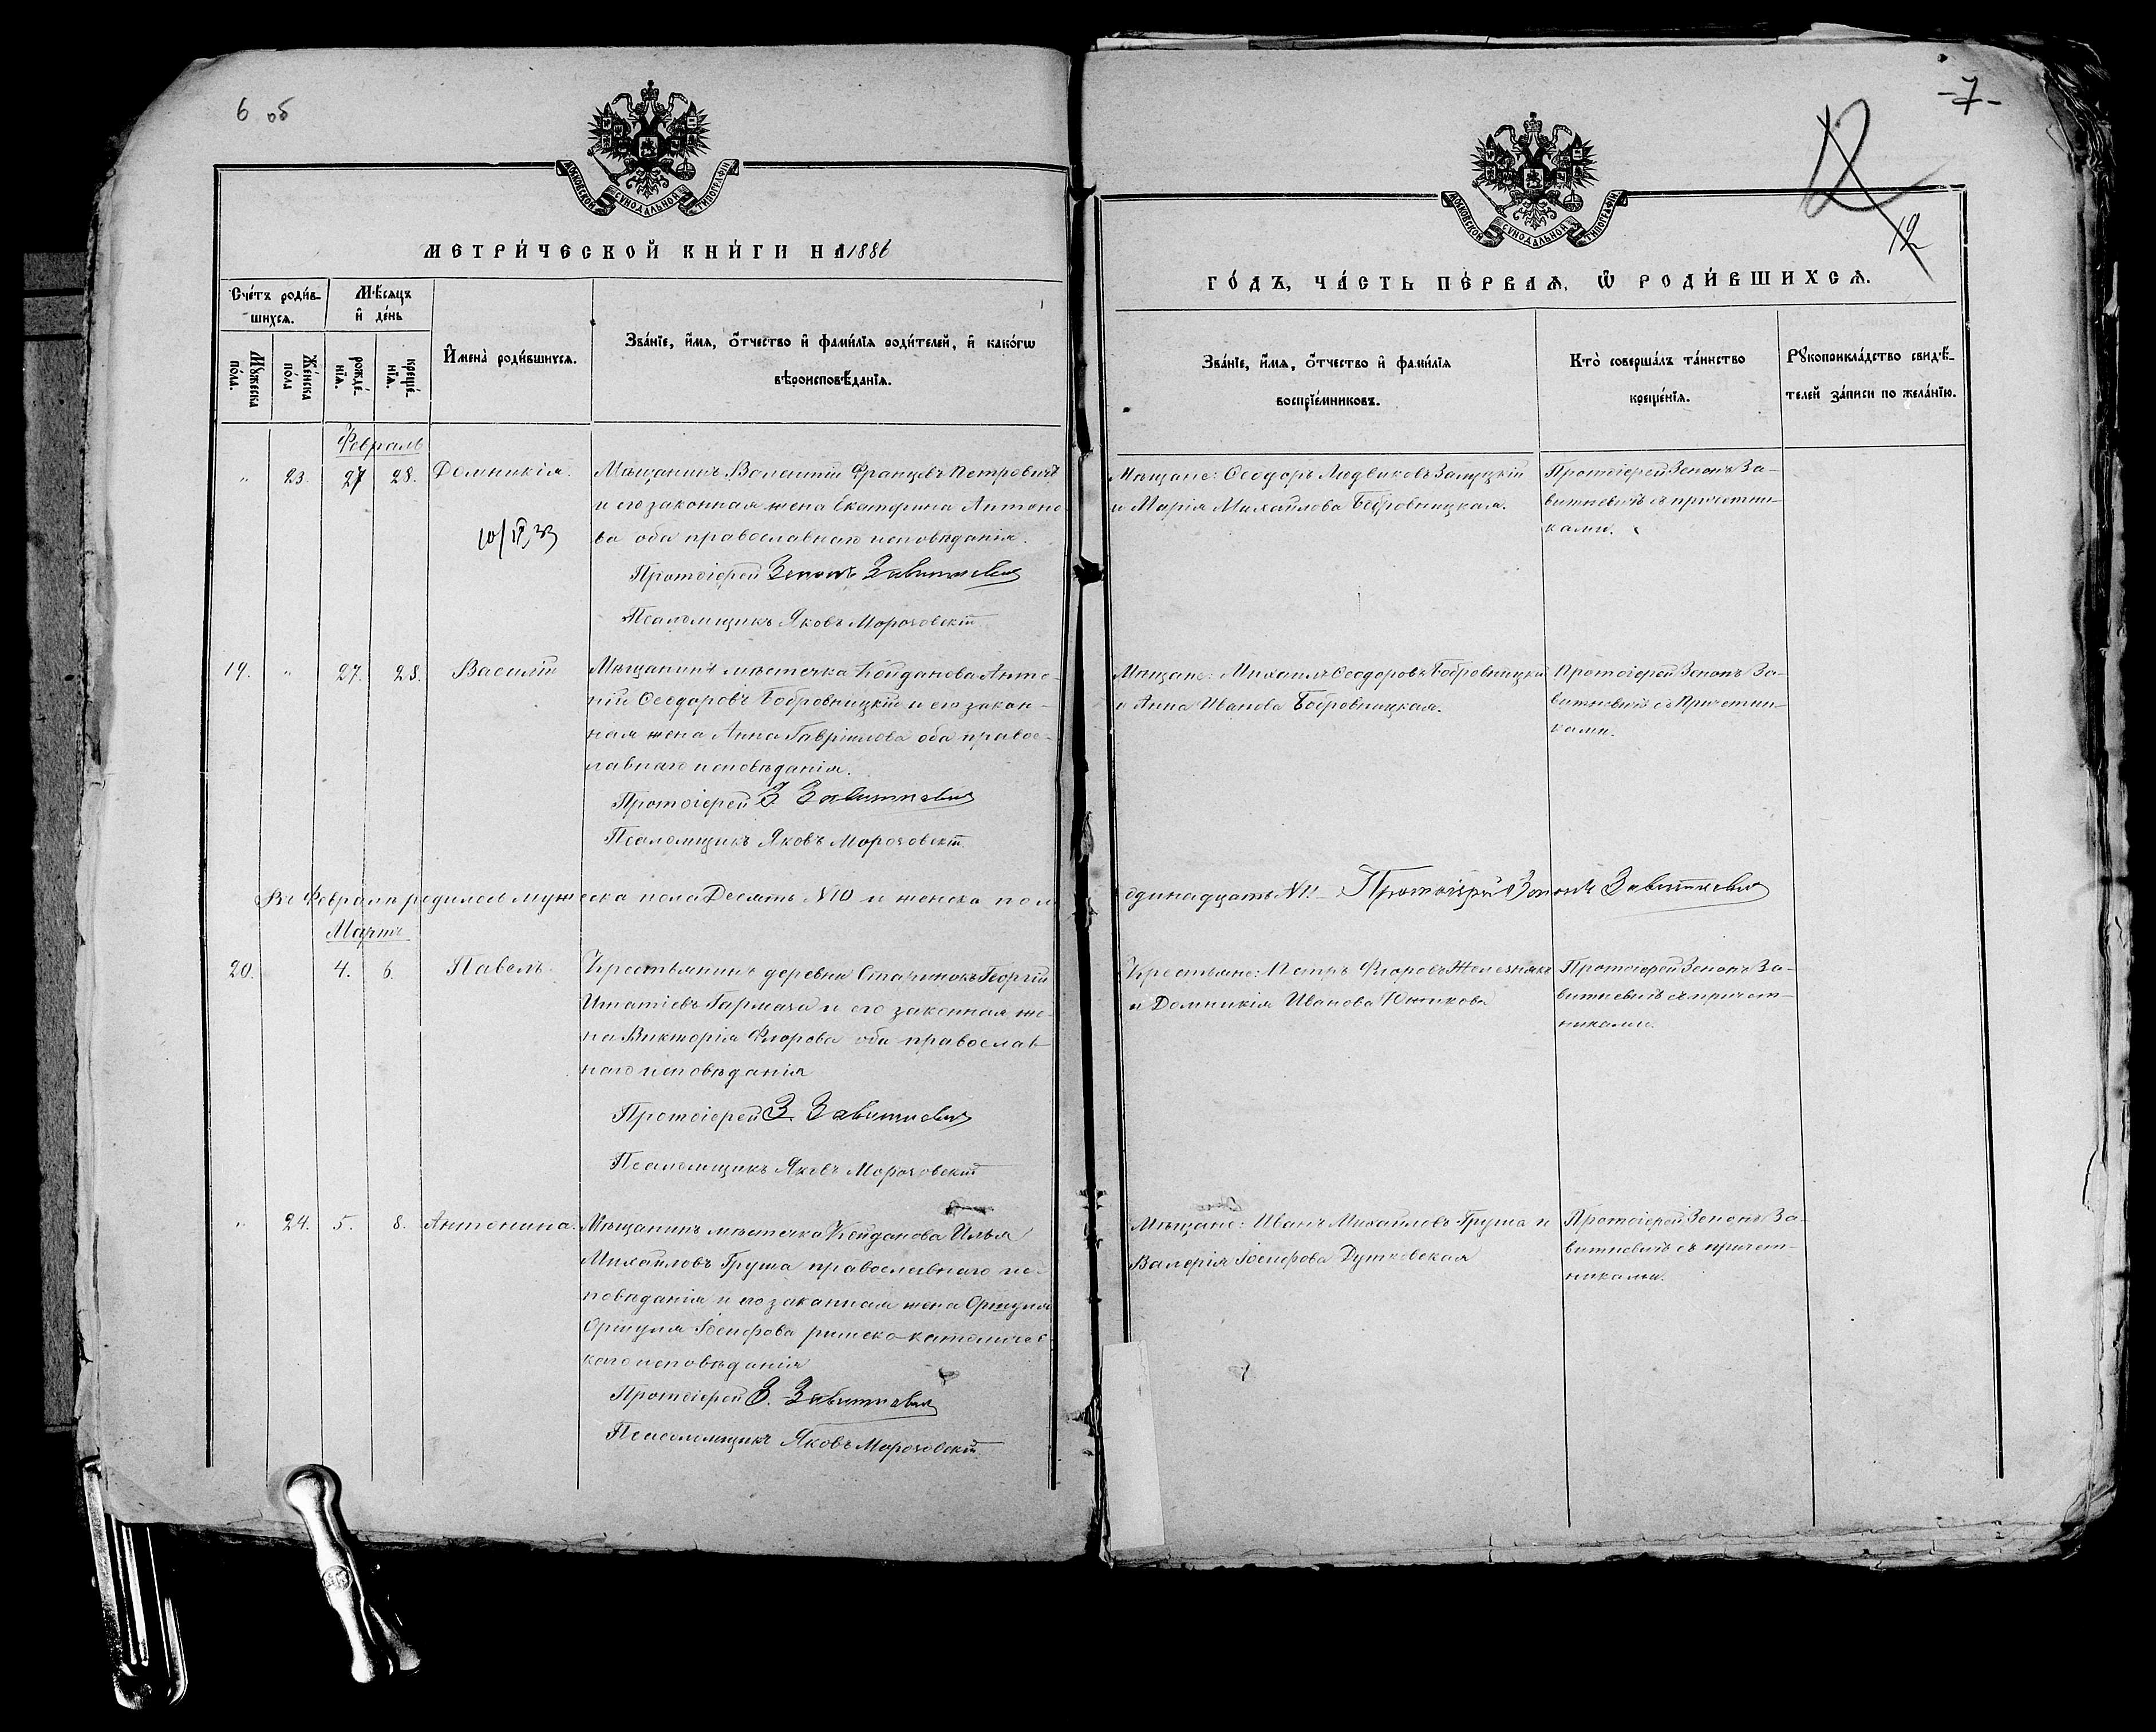 6 об
МОСКОВСКОЙ СУНОДАЛЬНОЙ ТИПОГРАФІИ
МЕТРИ́ЧЕСКОЙ КНИ́ГИ НА 1886
Сче́тъ роди́в-
шихся.
Мѣ́сяцъ
и҆ де́нь
Мꙋ́жеска
по́ла.
Же́нска
по́ла
рожде́-
нїѧ.
креще́-
нїѧ.
И҆мена̀ роди́вшихся.
Зва́нїе, и҆́мѧ, ѻ҆́тчество и҆ фами́лїѧ роди́телей, и҆ како́гѡ
вѣроисповѣ́данїѧ.
Февраль
" 23. 27 28. Домникія.
Мѣщанинъ Валентій Францевъ Петровичъ
и его законная жена Екатерина Антоно-
ва оба православнаго исповѣданія.
Протоіерей Зенонъ Завитневичъ
Псаломщикъ Яковъ Морозовскій
19. " 27. 28. Василій
Мѣщанинъ мѣстечка Койданова Анто-
ній Ѳеодоровъ Бобровницкій и его закон-
ная жена Анна Гавріилова оба право-
славнаго исповѣданія.
Протоіерей З Завитневичъ
Псаломщикъ Яковъ Морозовскій
Въ Февралѣ родилось мужеска пола Десять N 10 и женска пола
Мартъ
20. 4. 6. Павелъ
Крестьянинъ деревни Старинокъ Георгій
Игнатіевъ Гармаза и его законная же-
на Викторія Флорова оба православ-
наго исповѣданія
Протоіерей З. Завитневичъ
Псаломщикъ Яковъ Морозовскій
" 24. 5. 8. Антонина.
Мѣщанинъ мѣстечка Койданова Илья
Михайловъ Груша православнаго ис-
повѣданія и его законная жена Оршуля
Оршуля Іосифова римско-католичес-
каго исповѣданія
Протоіерей З. Завитневичъ
Псаломщикъ Яковъ Морозовскій
-7-
12
МОСКОВСКОЙ СУНОДАЛЬНОЙ ТИПОГРАФІИ
ГО́ДЪ, ЧА́СТЬ ПЕ́РВАѦ, Ѡ҆ РОДИ́ВШИХСѦ.
Зва́нїе, и҆́мѧ, ѻ҆́тчество и҆ фами́лїѧ
воспрїе́мниковъ.
Кто̀ соверша́лъ та́инство
креще́нїѧ.
Рꙋкоприкла́дство свидѣ́-
телей за́писи по жела́нїю.
Мѣщане: Ѳеодоръ Людвиковъ Залуцкій
и Марія Михайлова Бобровницкая.
Протоіерей Зенонъ За-
витневичъ съ причетни-
ками.
Мѣщане: Михаилъ Ѳеодоровъ Бобровницкій
и Анна Иванова Бобровницкая.
Протоіерей Зенонъ За-
витневичъ съ Причетни-
ками.
одинадцать N 11 Протоіерей Зенонъ Завитневичъ
Крестьяне: Петръ Флоровъ Железнякъ
и Домникія Иванова
Протоіерей Зенонъ За-
витневичъ съ причет-
никами.
Мѣщане: Иванъ Михайловъ Груша и
Валерія Іосифова Дутковская
Протоіерей Зенонъ За-
витневичъ съ причет-
никами.